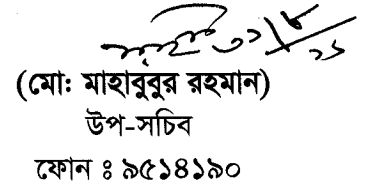 (মোঃ মাহাবুবুর রহমান)
উপ-সচিব
ফোন ঃ ৯৫১৪১৯০